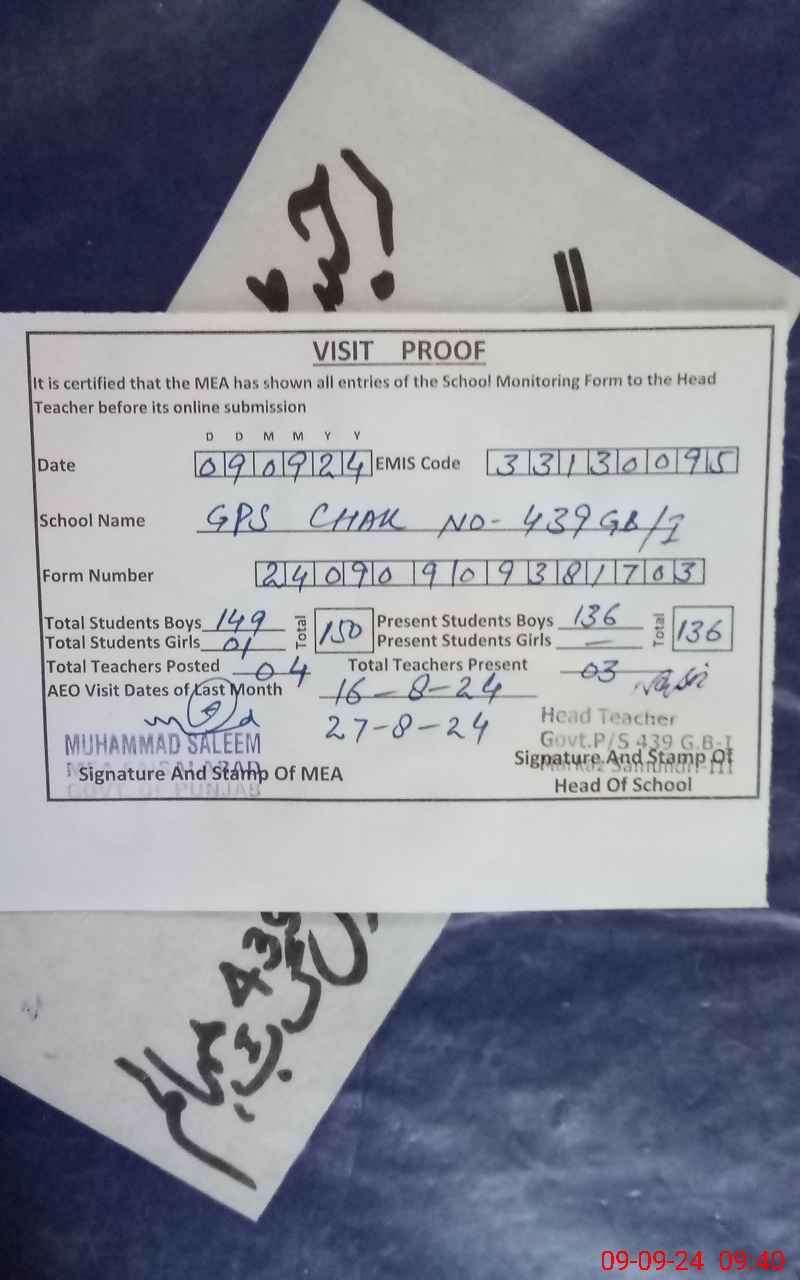 VISIT PROOF
It is certified that the MEA has shown all entries of the School Monitoring Form to the Head
Teacher before its online submission
D D M M Y Y
Date 090924 EMIS Code 33130095
School Name GPS CHAK NO- 439 GB/I
Form Number 24090909381703
Total Students Boys 149 Total 150 Present Students Boys 136 Total 136
Total Students Girls 01 Present Students Girls —
Total Teachers Posted 04 Total Teachers Present 03
AEO Visit Dates of Last Month 16-8-24
27-8-24
MUHAMMAD SALEEM
GOVT. OF PUNJAB
Signature And Stamp Of MEA
Head Teacher
Govt.P/S 439 G.B-I
Signature And Stamp Of
Head Of School
439
09-09-24 09:40